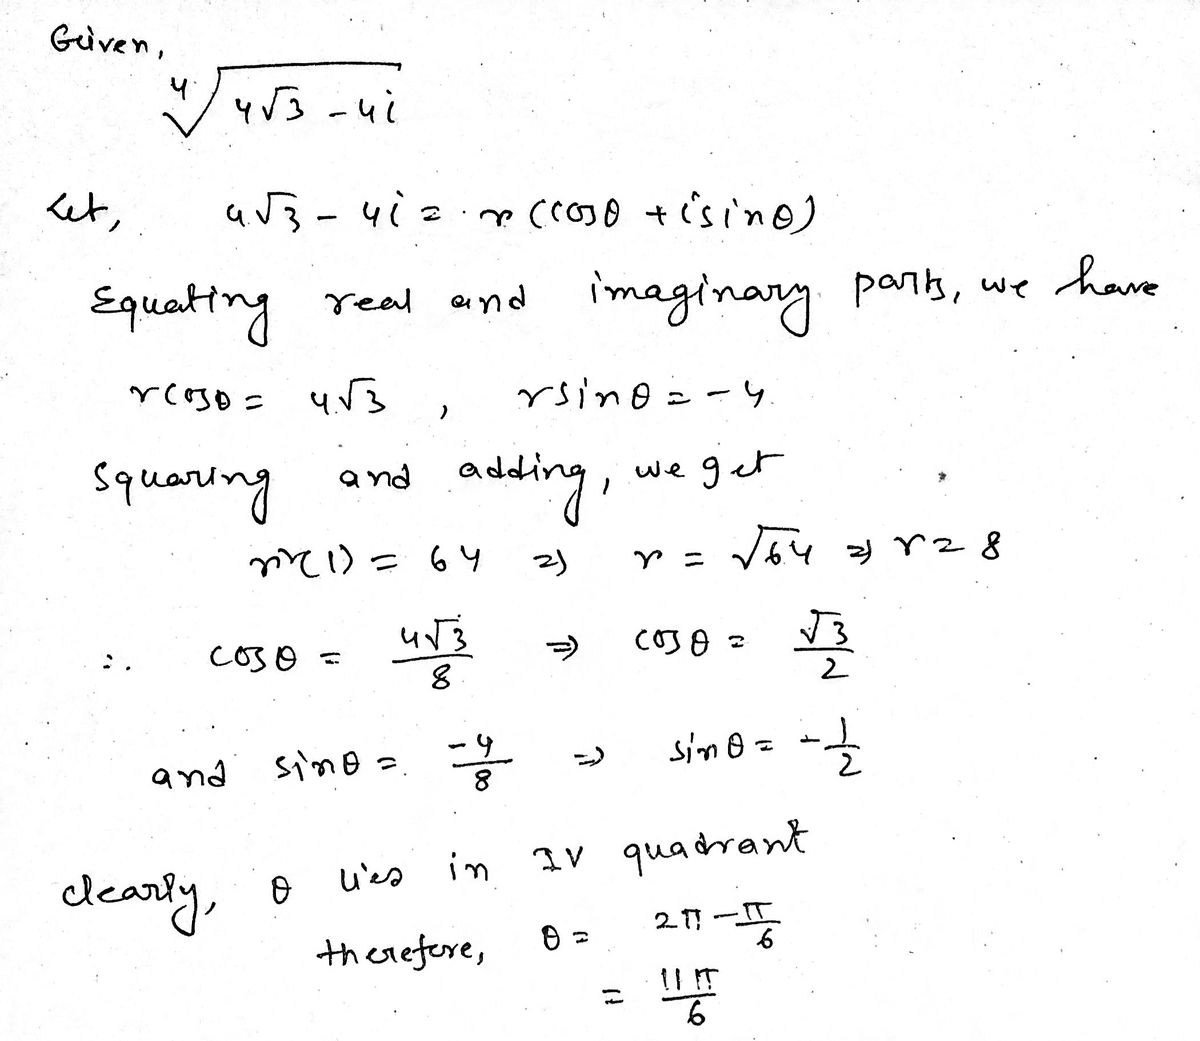 Given,
∜(4√3 - 4i)
Let, 4√3 - 4i = r (cosθ + i sinθ)
Equating real and imaginary parts, we have
r cosθ = 4√3 , r sinθ = -4
Squaring and adding, we get
r²(1) = 64 ⇒ r = √64 ⇒ r = 8
∴ cosθ = 4√3/8 ⇒ cosθ = √3/2
and sinθ = -4/8 ⇒ sinθ = -1/2
clearly, θ lies in IV quadrant
therefore, θ = 2π - π/6
= 11π/6